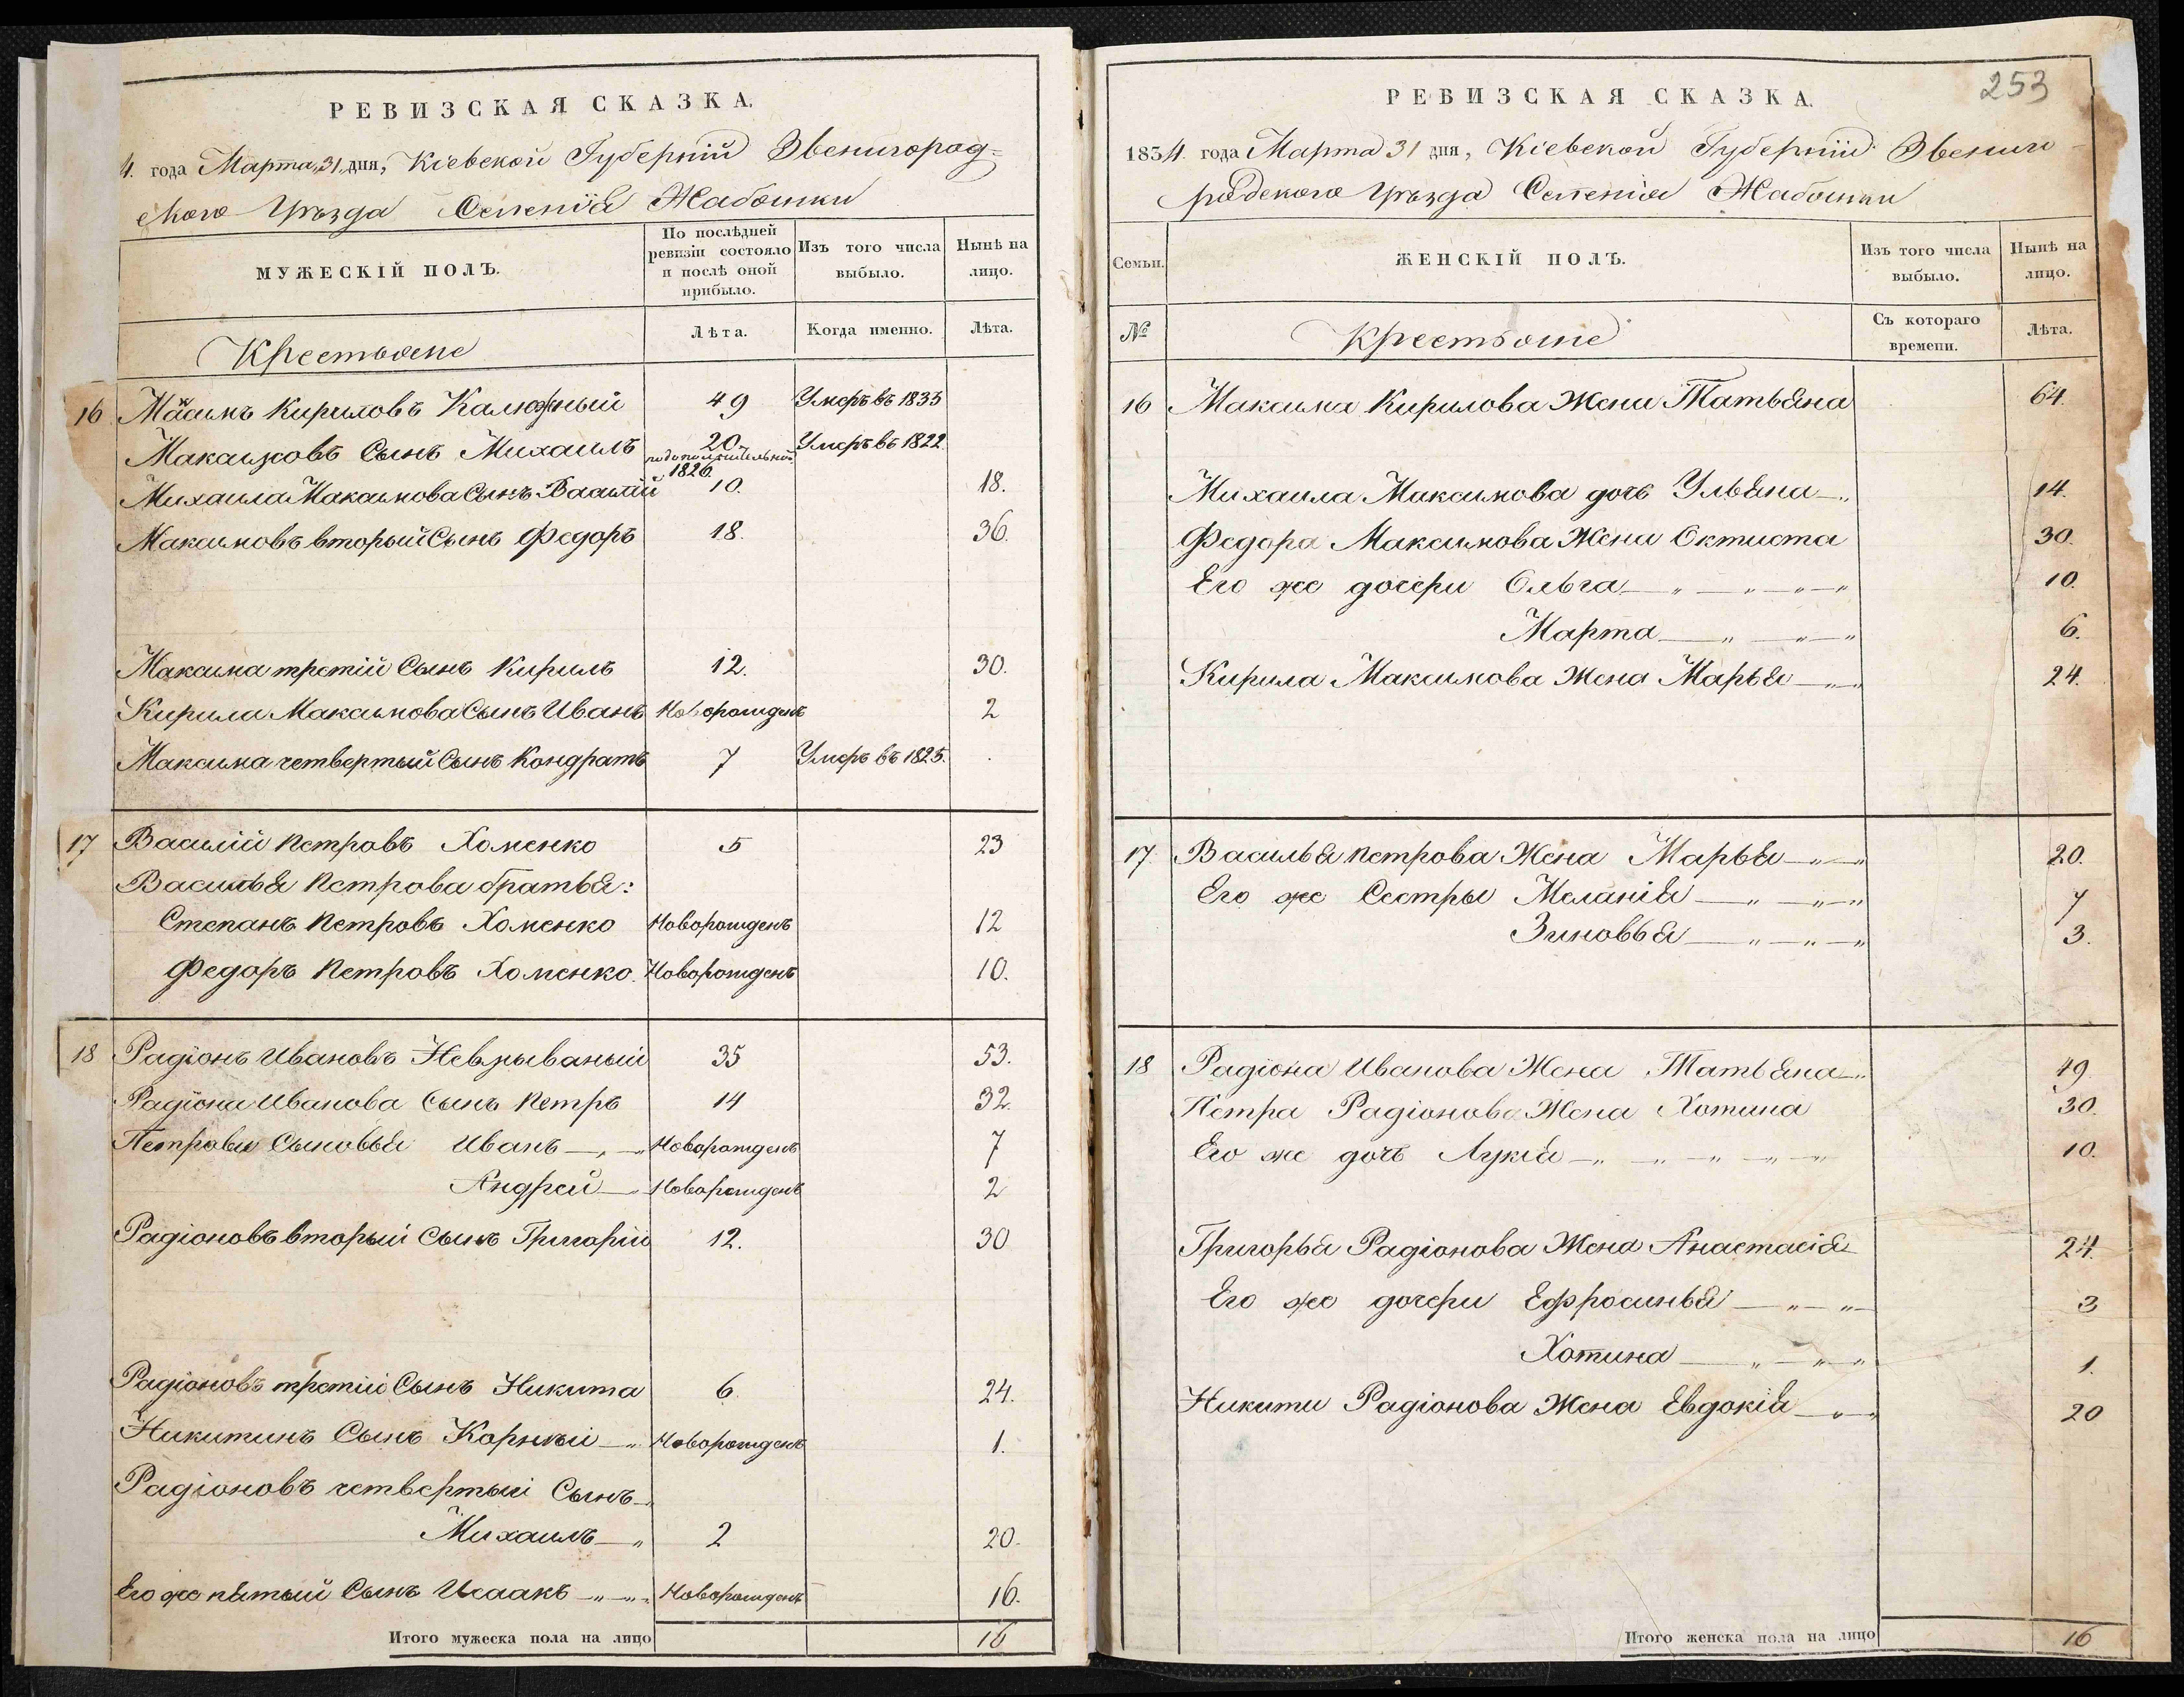 РЕВИЗСКАЯ СКАЗКА.
4. года Марта 31 дня, Кіевской Губерніи Звенигород-
ского Уѣзда Селенія Жабошки
МУЖЕСКІЙ ПОЛЪ.
По послѣдней ревизіи состояло и послѣ оной прибыло.
Изъ того числа выбыло.
Нынѣ на лицо.
Крестьяне
Лѣта.
Когда именно.
Лѣта.
16 Максимъ Кириловъ Калюжный 49 Умеръ въ 1833
Максимовъ Сынъ Михаилъ 20 Умеръ въ 1822
по дополнительной 1826
Михаила Максимова Сынъ Василій 10. 18.
Максимовъ вторый Сынъ Федоръ 18. 36.
Максима третій Сынъ Кирилъ 12. 30.
Кирила Максимова Сынъ Иванъ Новорожденъ 2
Максима четвертый Сынъ Кондратъ 7 Умеръ въ 1825.
17 Василій Петровъ Хоменко 5 23
Василья Петрова братья:
Степанъ Петровъ Хоменко Новорожденъ 12
Федоръ Петровъ Хоменко. Новорожденъ 10.
18 Радіонъ Ивановъ 35 53.
Радіона Иванова Сынъ Петръ 14 32.
Петровы Сыновья Иванъ —„—„ Новорожденъ 7
Андрей —„ Новорожденъ 2
Радіоновъ вторый Сынъ Григорій 12. 30
Радіоновъ третій Сынъ Никита 6. 24.
Никитинъ Сынъ Корнѣй —„ Новорожденъ 1.
Радіоновъ четвертый Сынъ
Михаилъ —„ 2 20.
Его же пятый Сынъ Исаакъ —„—„ Новорожденъ 16.
Итого мужеска пола на лицо 16
253
РЕВИЗСКАЯ СКАЗКА.
1834. года Марта 31 дня, Кіевской Губерніи Звениго-
родского Уѣзда Селенія Жабошки
Семьи.
ЖЕНСКІЙ ПОЛЪ.
Изъ того числа выбыло.
Нынѣ на лицо.
№
Крестьяне
Съ котораго времени.
Лѣта.
16 Максима Кирилова Жена Татьяна 64.
Михаила Максимова дочь Ульяна —„ 14.
Федора Максимова Жена Октиста 30.
Его же дочери Ольга —„—„—„—„ 10.
Марта —„—„—„ 6.
Кирила Максимова Жена Марья —„—„ 24.
17. Василья Петрова Жена Марья —„—„ 20.
Его же Сестры Меланія —„—„—„ 7
Зиновья —„—„—„ 3.
18 Радіона Иванова Жена Татьяна —„ 49.
Петра Радіонова Жена Хотина 30.
Его же дочь Лукія —„—„—„—„—„ 10.
Григорья Радіонова Жена Анастасія 24.
Его же дочери Ефросинья —„—„ 3
Хотина —„—„—„ 1.
Никиты Радіонова Жена Евдокія —„—„ 20
Итого женска пола на лицо 16